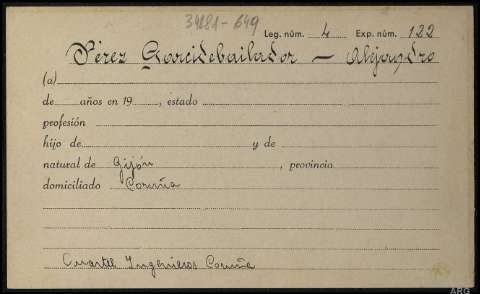 34181-649
Leg. núm. 4 Exp. núm. 122
Pérez Garcidebailador — Alejandro
(a)
de años en 19 , estado
profesión
hijo de y de
natural de Gijón , provincia
domiciliado Coruña
Cuartel Ingenieros Coruña
ARG